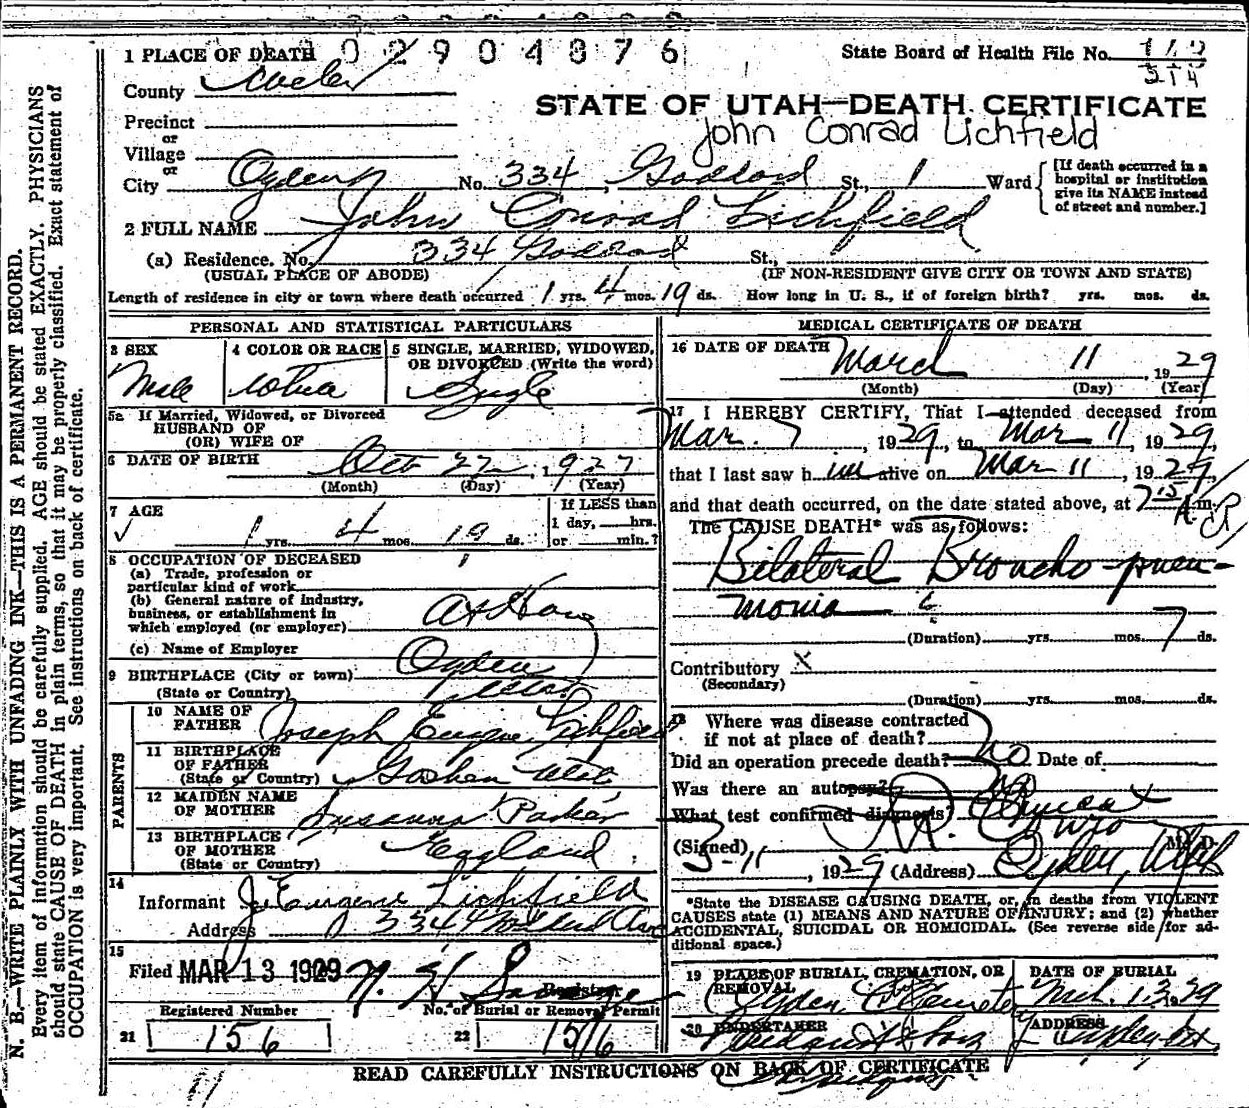 1 PLACE OF DEATH 02904876 State Board of Health File No.
County Weber
STATE OF UTAH—DEATH CERTIFICATE
Precinct
John Conrad Lichfield
or
Village
or
City Ogden No. 334, Goddard St., 1 Ward
[If death occurred in a
hospital or institution
give its NAME instead
of street and number.]
2 FULL NAME John Conrad Lichfield
(a) Residence. No. 334 Goddard St.,
(USUAL PLACE OF ABODE) (IF NON-RESIDENT GIVE CITY OR TOWN AND STATE)
Length of residence in city or town where death occurred 1 yrs. 4 mos. 19 ds. How long in U. S., if of foreign birth? yrs. mos. ds.
PERSONAL AND STATISTICAL PARTICULARS
3 SEX 4 COLOR OR RACE 5 SINGLE, MARRIED, WIDOWED,
OR DIVORCED (Write the word)
Male White Single
5a If Married, Widowed, or Divorced
HUSBAND OF
(OR) WIFE OF
6 DATE OF BIRTH Oct 22, 1927
(Month) (Day) (Year)
7 AGE If LESS than
1 day, hrs.
1 yrs. 4 mos. 19 ds. or min.?
8 OCCUPATION OF DECEASED
(a) Trade, profession or
particular kind of work
(b) General nature of industry,
business, or establishment in
which employed (or employer) At Home
(c) Name of Employer
9 BIRTHPLACE (City or town) Ogden
(State or Country) Utah
PARENTS
10 NAME OF
FATHER Joseph Eugene Lichfield
11 BIRTHPLACE
OF FATHER
(State or Country) Goshen Utah
12 MAIDEN NAME
OF MOTHER Susanna Parker
13 BIRTHPLACE
OF MOTHER England
(State or Country)
14
Informant J. Eugene Lichfield
Address 334
15
Filed MAR 13 1929
Registrar
Registered Number No. of Burial or Removal Permit
21 156 22 156
MEDICAL CERTIFICATE OF DEATH
16 DATE OF DEATH March 11, 1929
(Month) (Day) (Year)
17 I HEREBY CERTIFY, That I attended deceased from
Mar. 7, 1929, to Mar 11, 1929,
that I last saw h im alive on Mar 11, 1929,
and that death occurred, on the date stated above, at 7 15 A.m.
The CAUSE DEATH* was as follows:
Bilateral Broncho-pneu-
monia
(Duration) yrs. mos. 7 ds.
Contributory X
(Secondary)
(Duration) yrs. mos. ds.
18 Where was disease contracted
if not at place of death?
Did an operation precede death? no Date of
Was there an autopsy? no
What test confirmed diagnosis?
(Signed) M. D.
3-11, 1929 (Address) Ogden, Utah
*State the DISEASE CAUSING DEATH, or, in deaths from VIOLENT
CAUSES state (1) MEANS AND NATURE OF INJURY; and (2) whether
ACCIDENTAL, SUICIDAL OR HOMICIDAL. (See reverse side for ad-
ditional space.)
19 PLACE OF BURIAL, CREMATION, OR
REMOVAL DATE OF BURIAL
Ogden City Cemetery Mch. 13, 1929
20 UNDERTAKER ADDRESS
READ CAREFULLY INSTRUCTIONS ON BACK OF CERTIFICATE
N. B.—WRITE PLAINLY WITH UNFADING INK—THIS IS A PERMANENT RECORD.
Every item of information should be carefully supplied. AGE should be stated EXACTLY. PHYSICIANS
should state CAUSE OF DEATH in plain terms, so that it may be properly classified. Exact statement of
OCCUPATION is very important. See instructions on back of certificate.